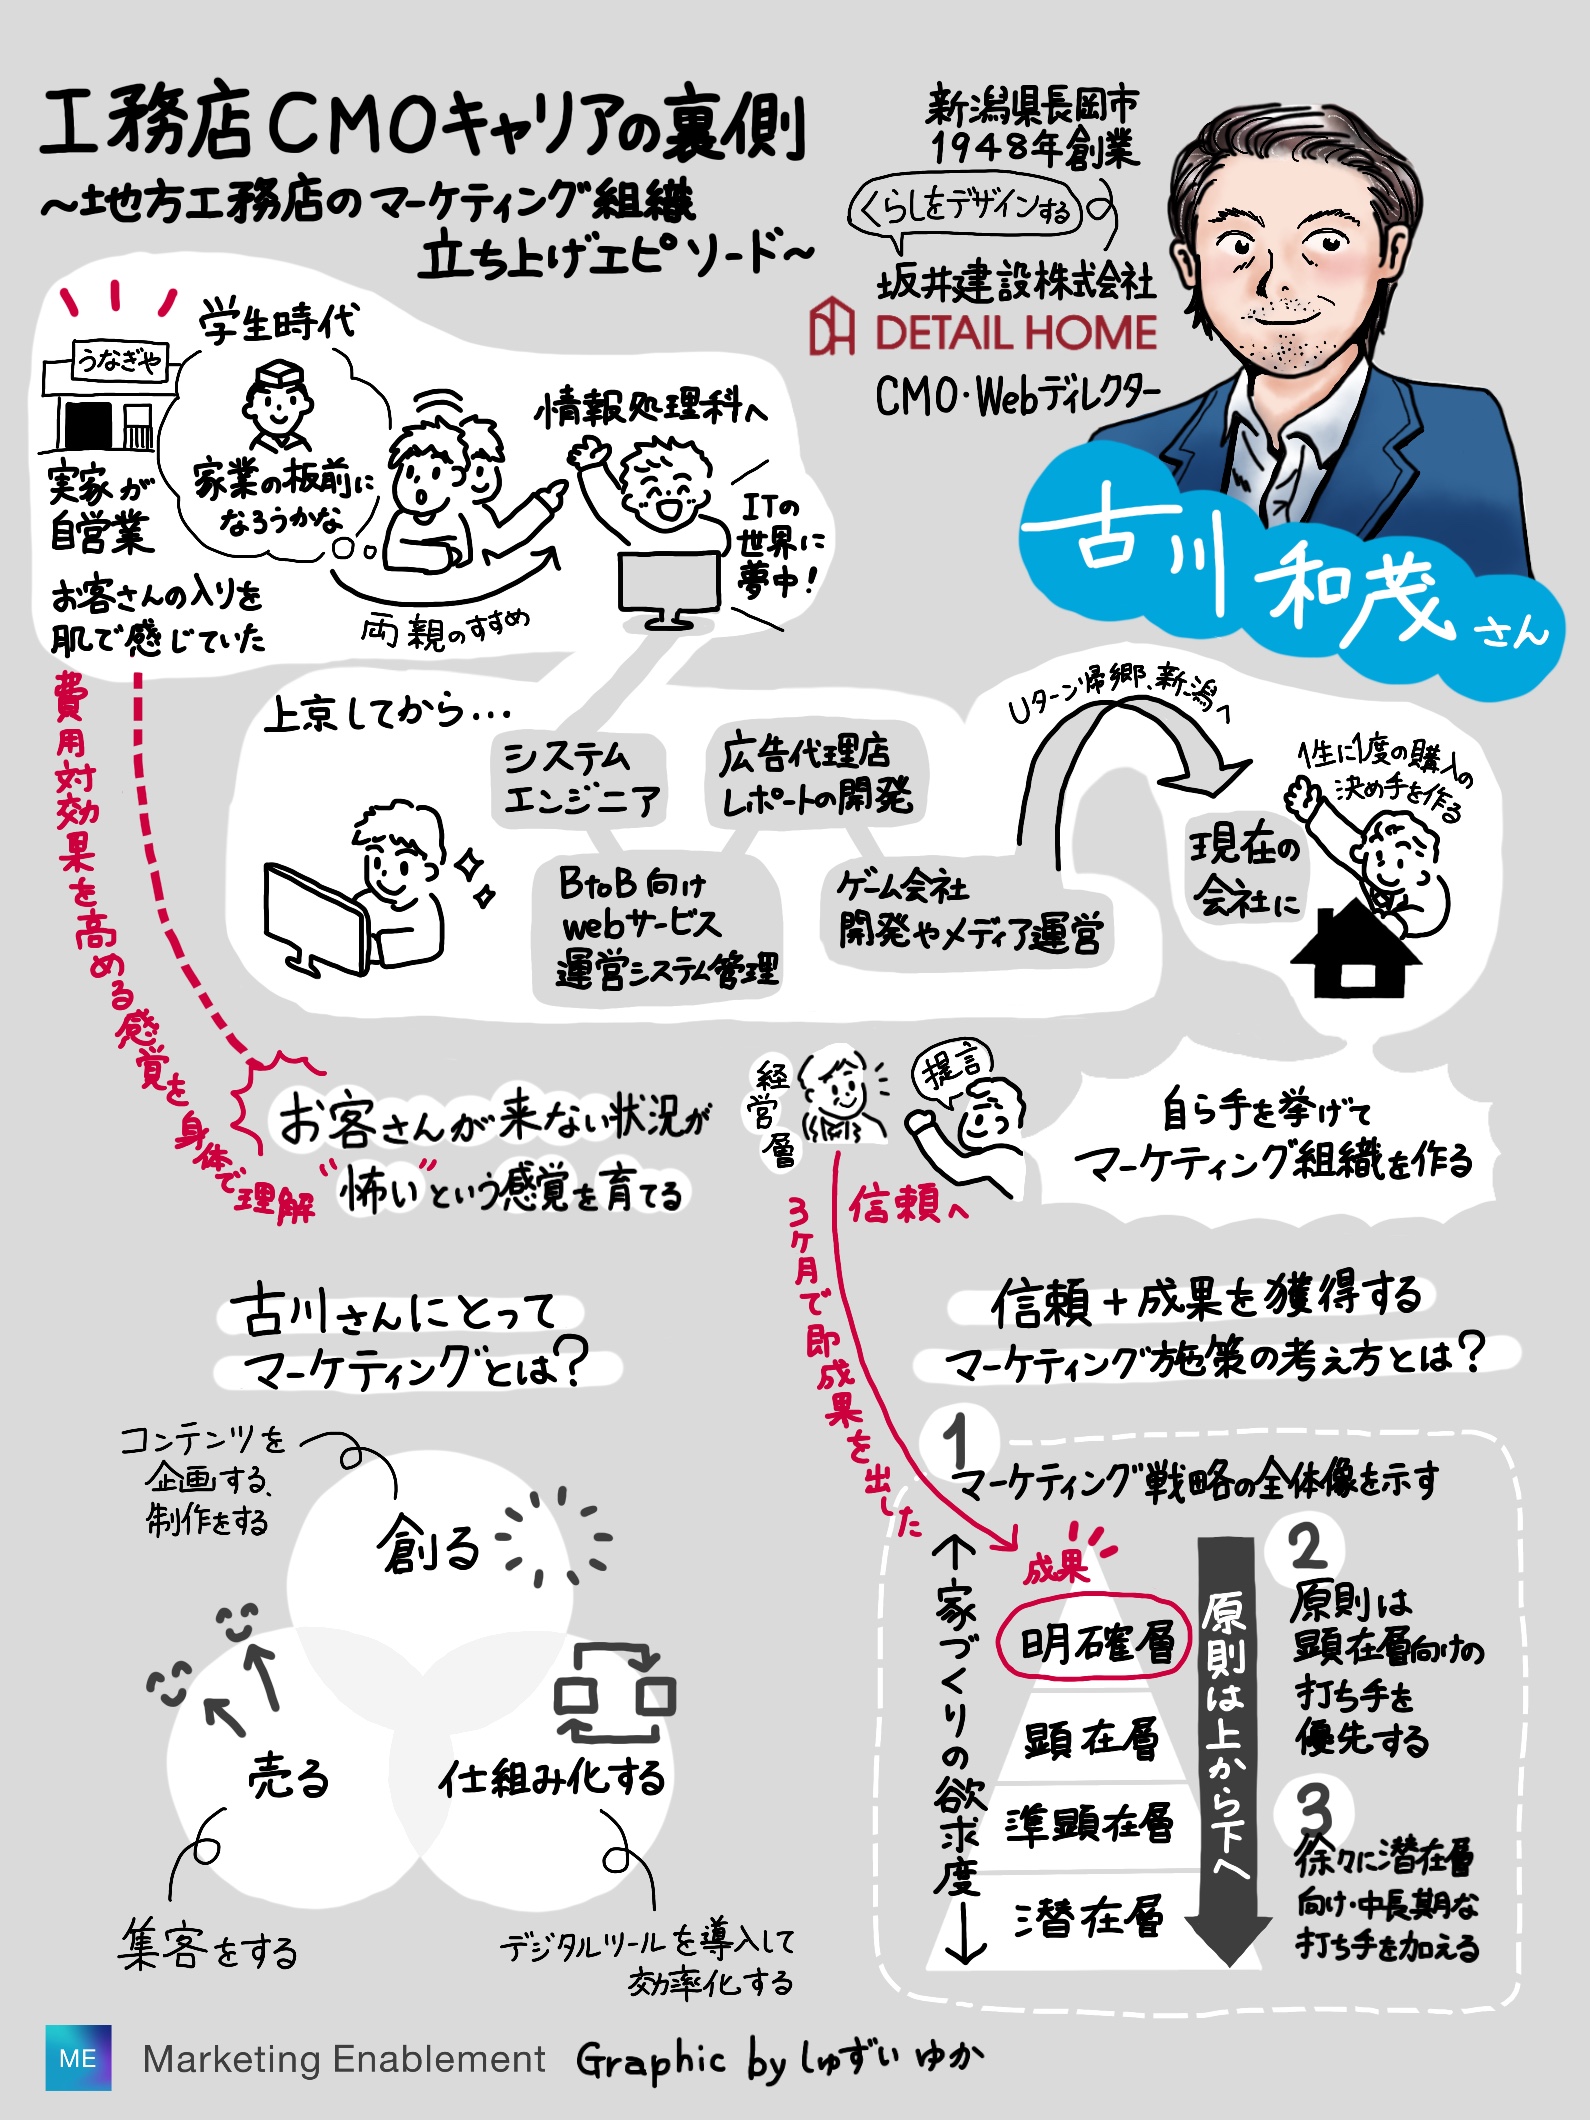 工務店CMOキャリアの裏側
〜地方工務店のマーケティング組織
立ち上げエピソード〜
新潟県長岡市
1948年創業
くらしをデザインする
坂井建設株式会社
DH DETAIL HOME
CMO・Webディレクター
古川 和茂さん
うなぎや
実家が
自営業
お客さんの入りを
肌で感じていた
学生時代
家業の板前に
なろうかな
両親のすすめ
情報処理科へ
ITの
世界に
夢中!
費用対効果を高める感覚を身体で理解
上京してから...
システム
エンジニア
BtoB向け
webサービス
運営システム管理
広告代理店
レポートの開発
ゲーム会社
開発やメディア運営
Uターン帰郷、新潟へ
現在の
会社に
1生に1度の購入の
決め手を作る
お客さんが来ない状況が
"怖い"という感覚を育てる
経営層
提言
信頼へ
3ヶ月で即成果を出した
自ら手を挙げて
マーケティング組織を作る
古川さんにとって
マーケティングとは?
コンテンツを
企画する、
制作をする
創る
売る
仕組み化する
集客をする
デジタルツールを導入して
効率化する
信頼+成果を獲得する
マーケティング施策の考え方とは?
1
マーケティング戦略の全体像を示す
成果
家づくりの欲求度
明確層
顕在層
準顕在層
潜在層
原則は上から下へ
2
原則は
顕在層向けの
打ち手を
優先する
3
徐々に潜在層
向け・中長期な
打ち手を加える
ME Marketing Enablement Graphic by しゅずい ゆか